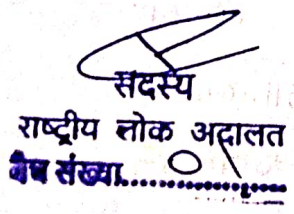 सदस्य
राष्ट्रीय लोक अदालत
बैंच संख्या...01...........